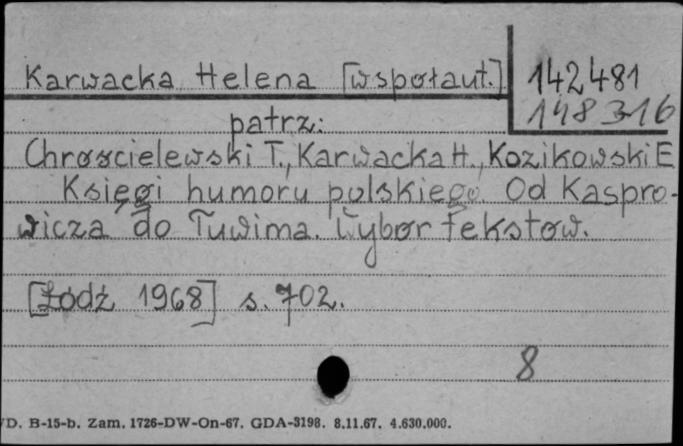 Karwacka Helena [współaut.] 142481
148316
patrz:
Chrościelewski T., Karwacka H., Kozikowski E
Księgi humoru polskiego Od Kaspro-
wicza do Tuwima. Wybór tekstów.
[Łódź 1968] s. 702.
8
D. B-15-b. Zam. 1726-DW-On-67. GDA-3198. 8.11.67. 4.630.000.